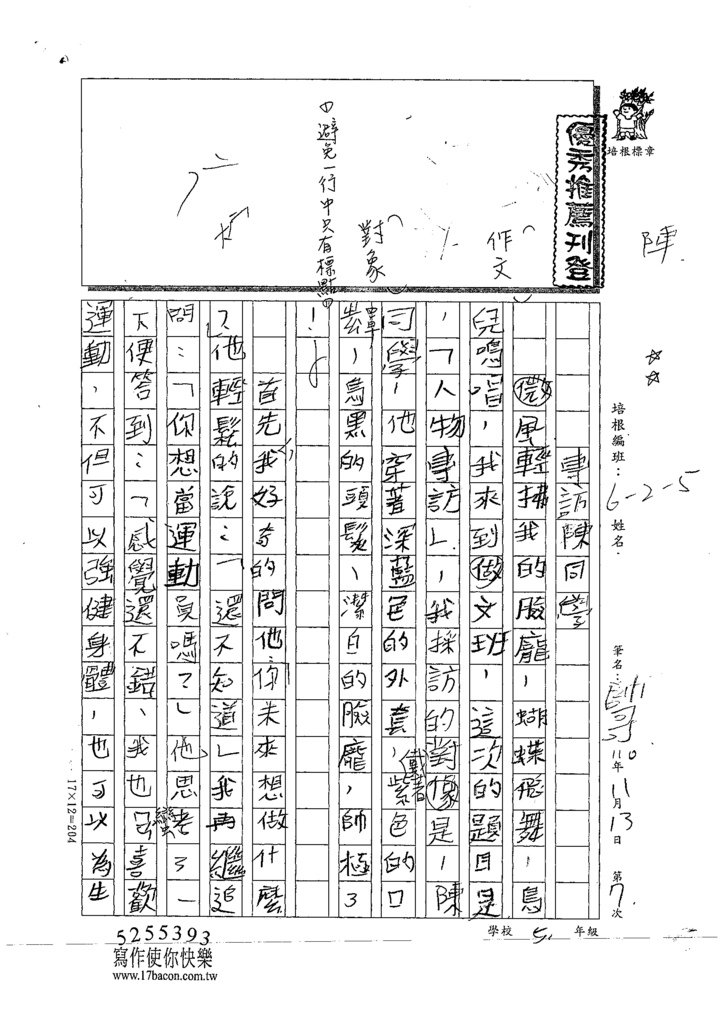 培根標章
優秀推薦刊登
陳
作文
對象
①避免一行中只有標點
培根編班：6-2-5 姓名：
筆名：
110年11月13日 第7次
專訪陳同學
微風輕拂我的臉龐，蝴蝶飛舞，鳥
兒鳴唱，我來到做文班，這次的題目是
，「人物專訪」，我採訪的對像是，陳
同學，他穿著深藍色的外套，戴著紫色的口
罩，烏黑的頭髮、潔白的臉龐，帥極了
！
首先我好奇的問他：你未來想做什麼
？他輕鬆的說：「還不知道」我再繼追
問：「你想當運動員嗎？」他思考了一
下便答到：「感覺還不錯、我也蠻喜歡
運動，不但可以強健身體，也可以為生
17×12=204
學校 5 年級
5255393
寫作使你快樂
www.17bacon.com.tw